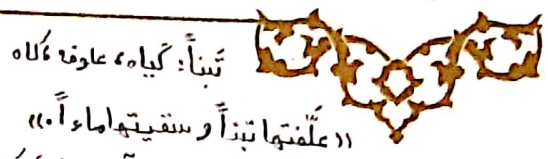 تَبناً: گیاه، علوفه، کاه
((علّفتها تبناً و سقیتها ماءاً.))